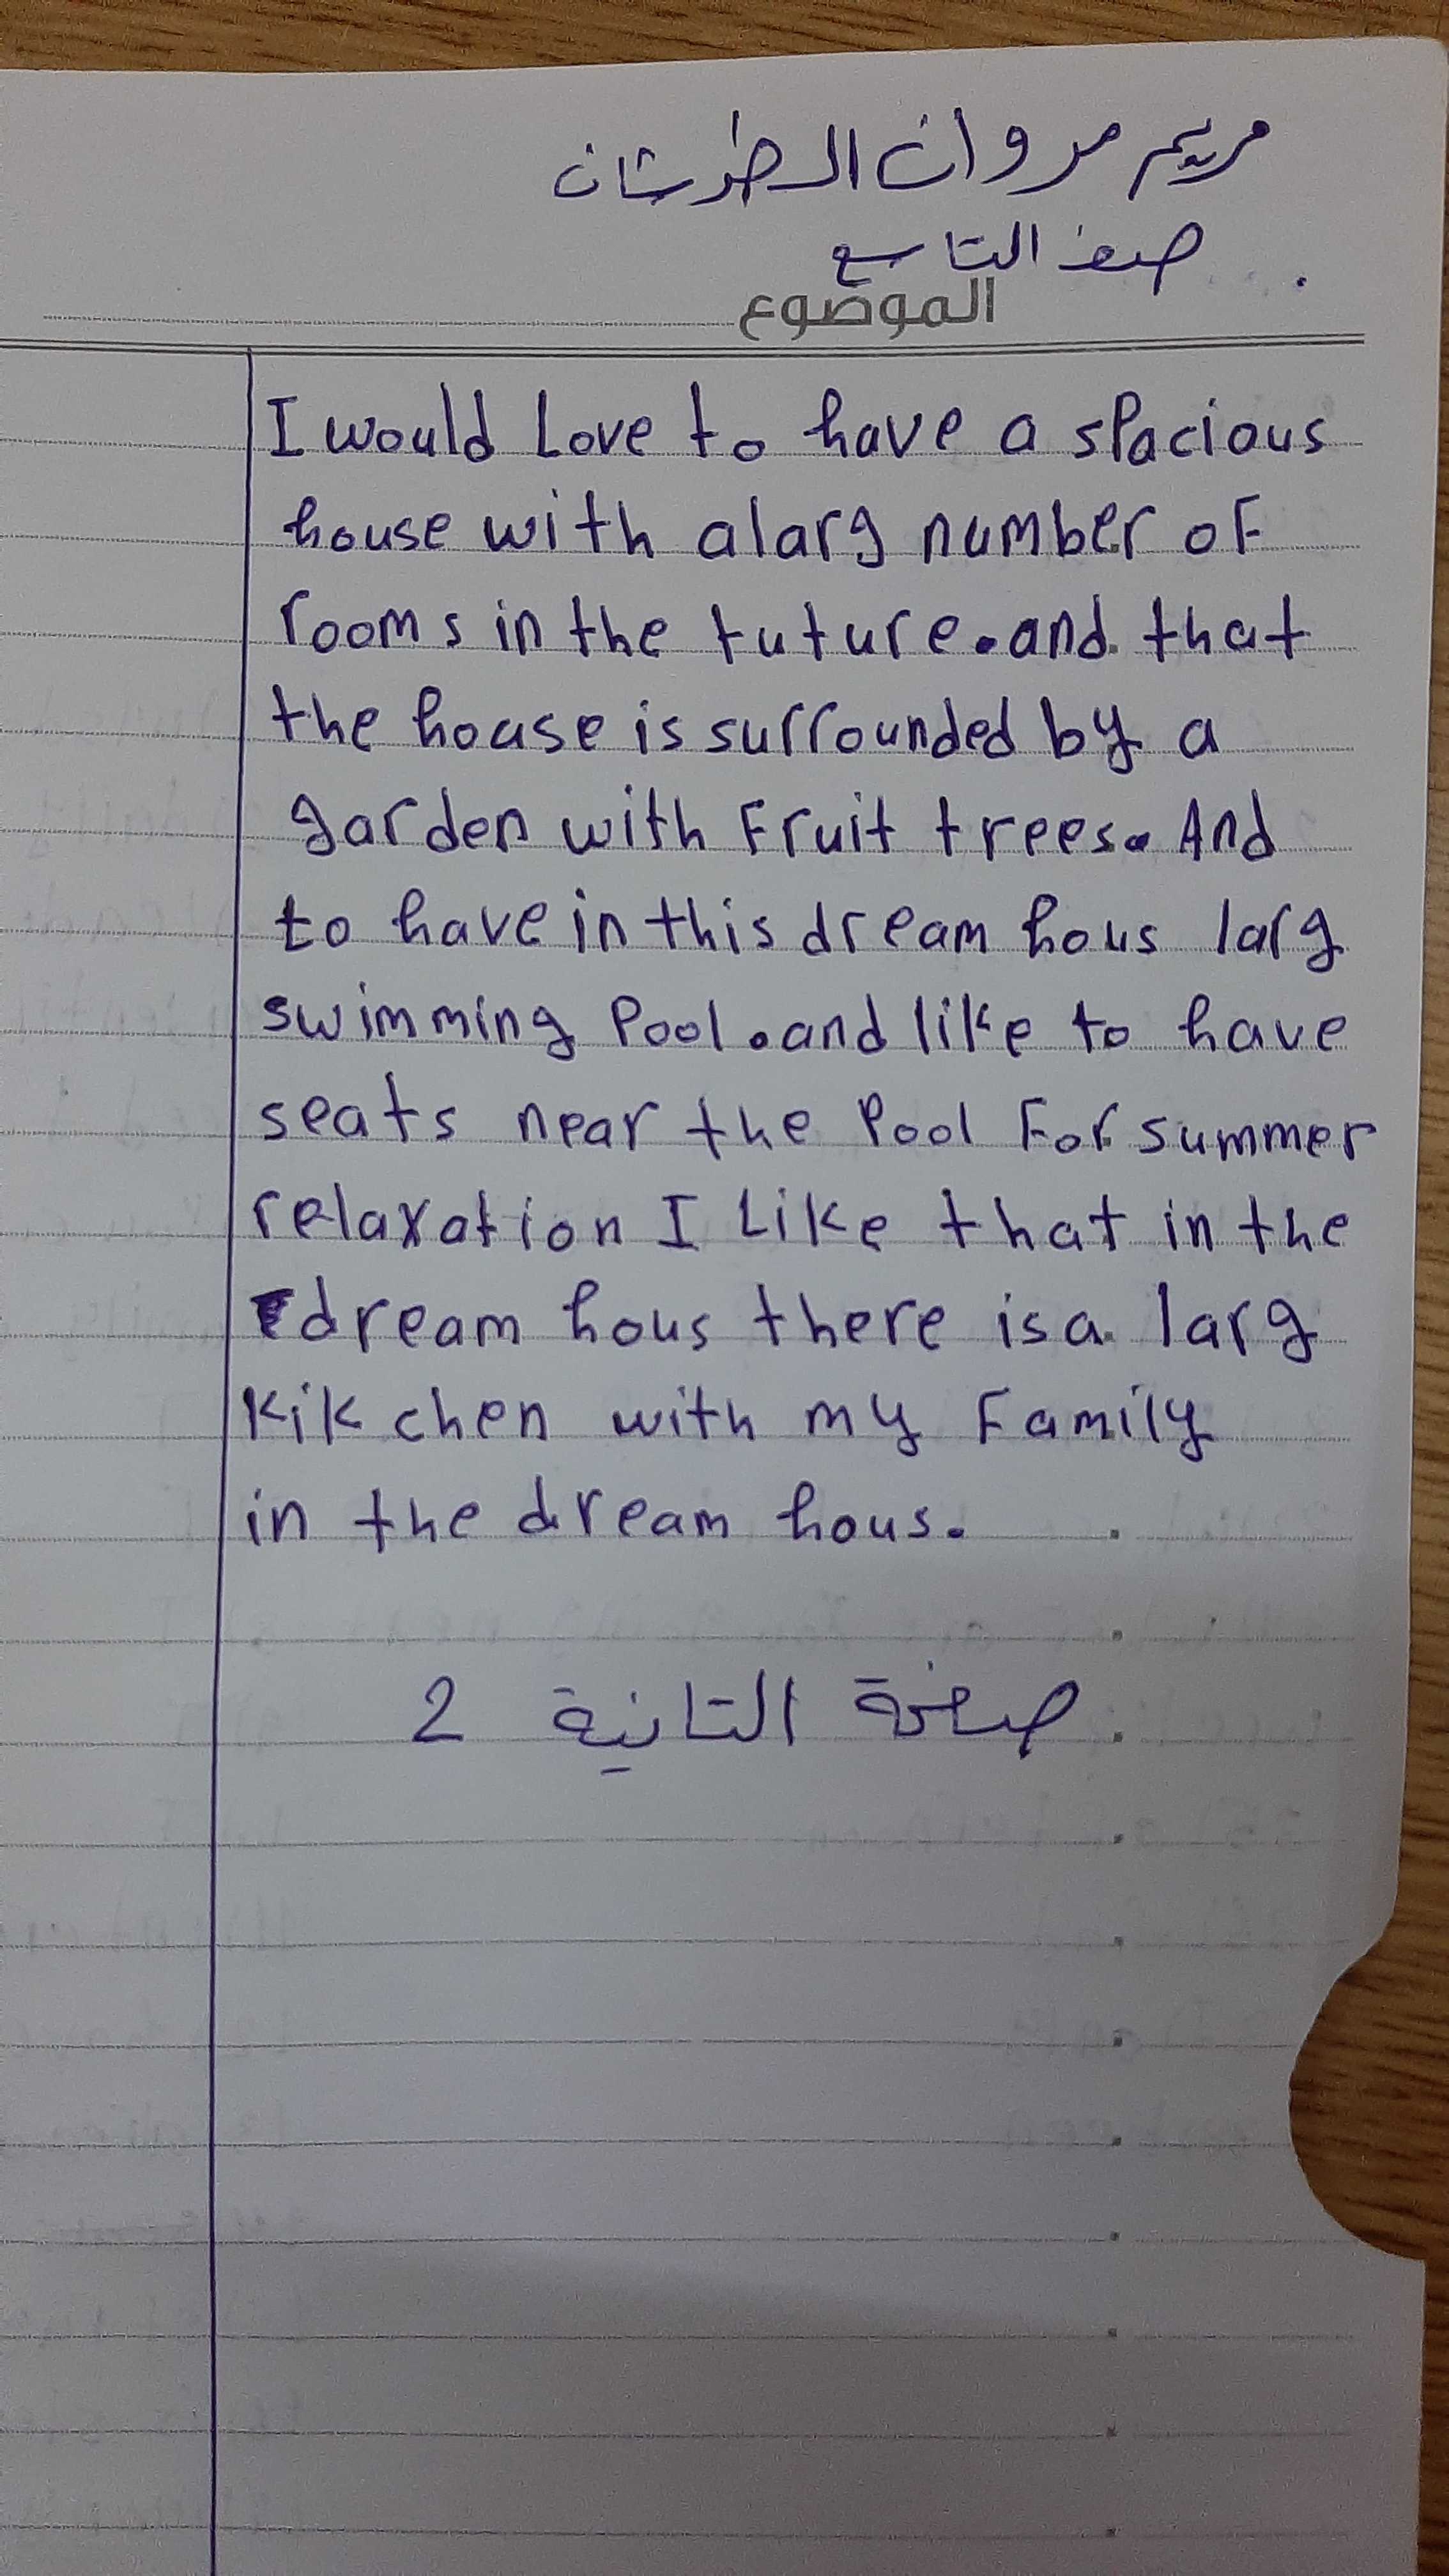 مريم مروان الطرشان
صف التاسع
الموضوع
I would Love to have a spacious
house with a larg number of
rooms in the tuture. and that
the house is surrounded by a
garden with Fruit trees. And
to have in this dream hous larg
swimming Pool. and like to have
seats near the Pool For summer
relaxation I Like that in the
dream hous there is a larg
Kikchen with my Family
in the dream hous.
صفحة التانية 2